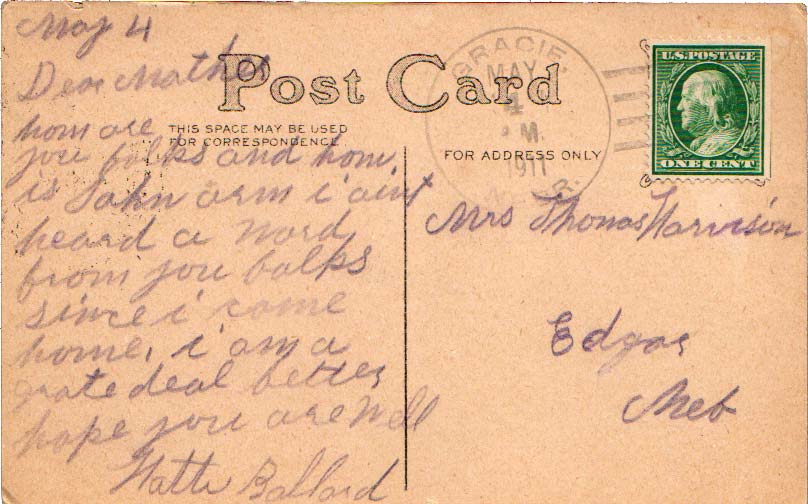 May 4
Dear Mother
Post Card
how are
THIS SPACE MAY BE USED
FOR CORRESPONDENCE
you folks and how
is John arm i aint
heard a word
from you folks
since i come
home, i am a
grate deal better
hope you are well
Ballard
FOR ADDRESS ONLY
GRACIE,
MAY
4
M.
1911
U.S. POSTAGE
ONE CENT
Mrs Thomas Harvison
Edgar
Neb